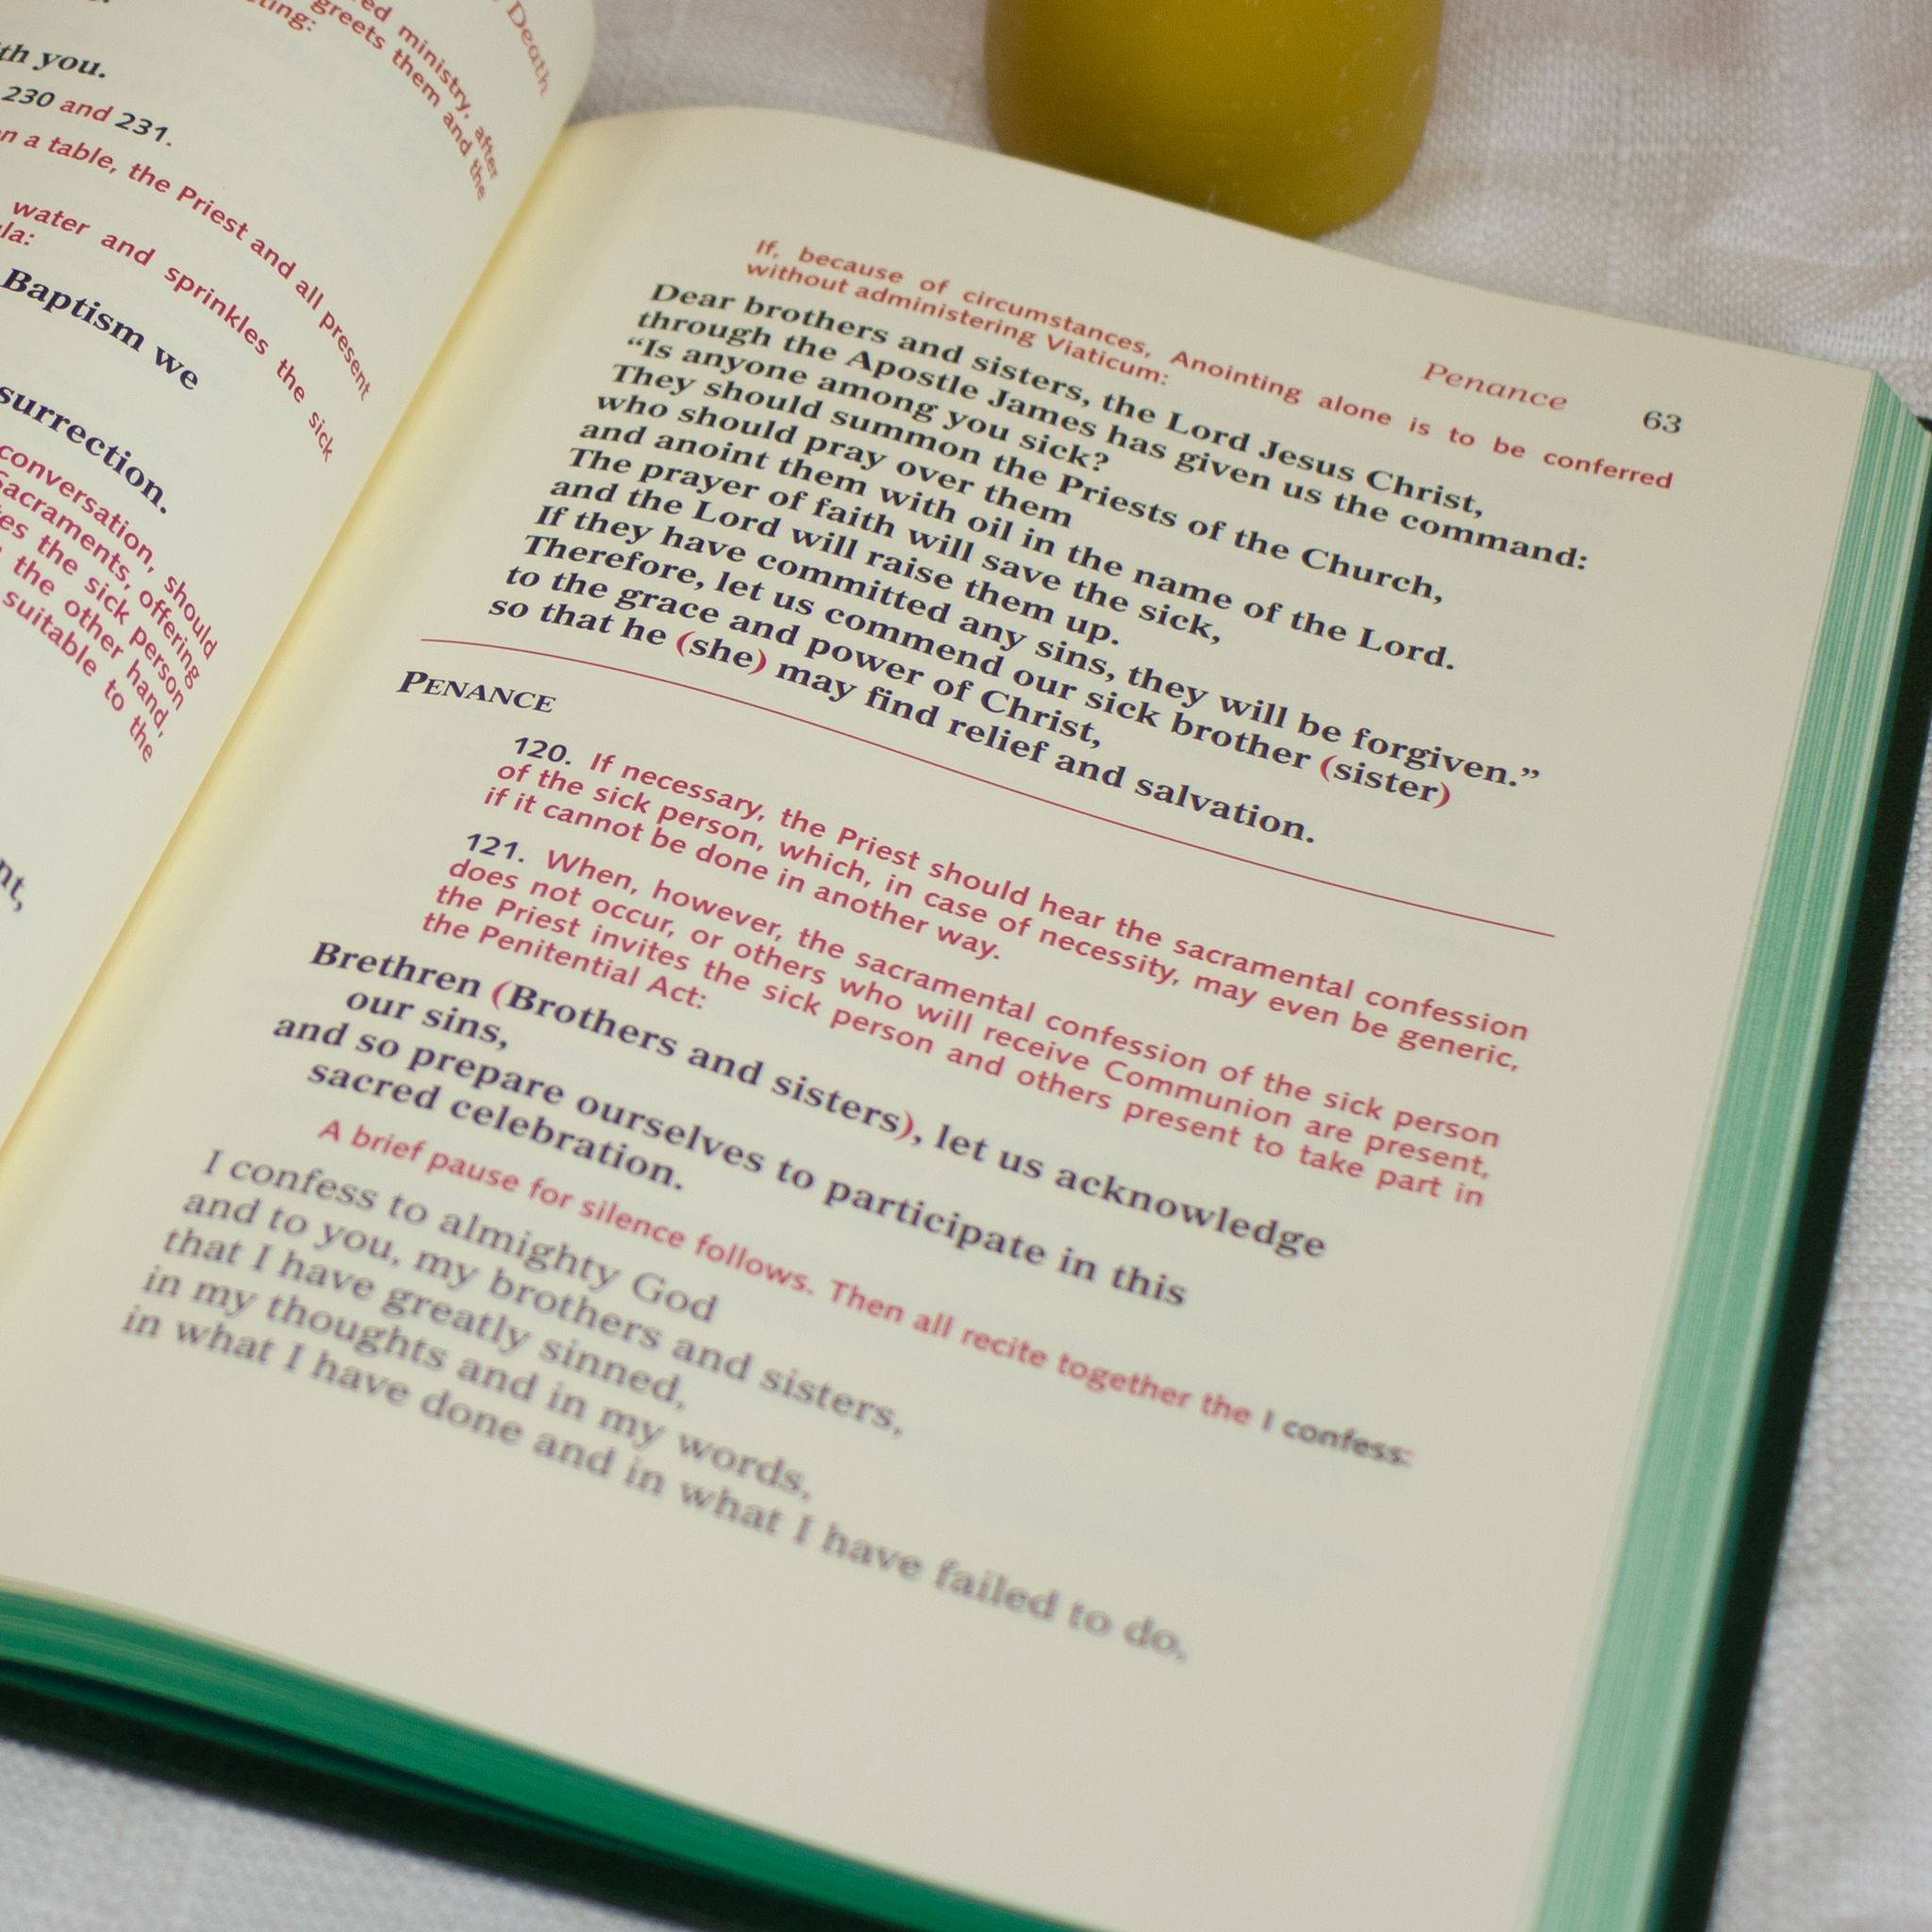 Death
ministry, after
greets them and the
th you.
230 and 231.
n a table, the Priest and all present
water and sprinkles the sick
Baptism we
surrection.
conversation, should
Sacraments, offering
the sick person
the other hand,
suitable to the
Penance 63
If, because of circumstances, Anointing alone is to be conferred
without administering Viaticum:
Dear brothers and sisters, the Lord Jesus Christ,
through the Apostle James has given us the command:
“Is anyone among you sick?
They should summon the Priests of the Church,
who should pray over them
and anoint them with oil in the name of the Lord.
The prayer of faith will save the sick,
and the Lord will raise them up.
If they have committed any sins, they will be forgiven.”
Therefore, let us commend our sick brother (sister)
to the grace and power of Christ,
so that he (she) may find relief and salvation.
PENANCE
120. If necessary, the Priest should hear the sacramental confession
of the sick person, which, in case of necessity, may even be generic,
if it cannot be done in another way.
121. When, however, the sacramental confession of the sick person
does not occur, or others who will receive Communion are present,
the Priest invites the sick person and others present to take part in
the Penitential Act:
Brethren (Brothers and sisters), let us acknowledge
our sins,
and so prepare ourselves to participate in this
sacred celebration.
A brief pause for silence follows. Then all recite together the I confess:
I confess to almighty God
and to you, my brothers and sisters,
that I have greatly sinned,
in my thoughts and in my words,
in what I have done and in what I have failed to do,